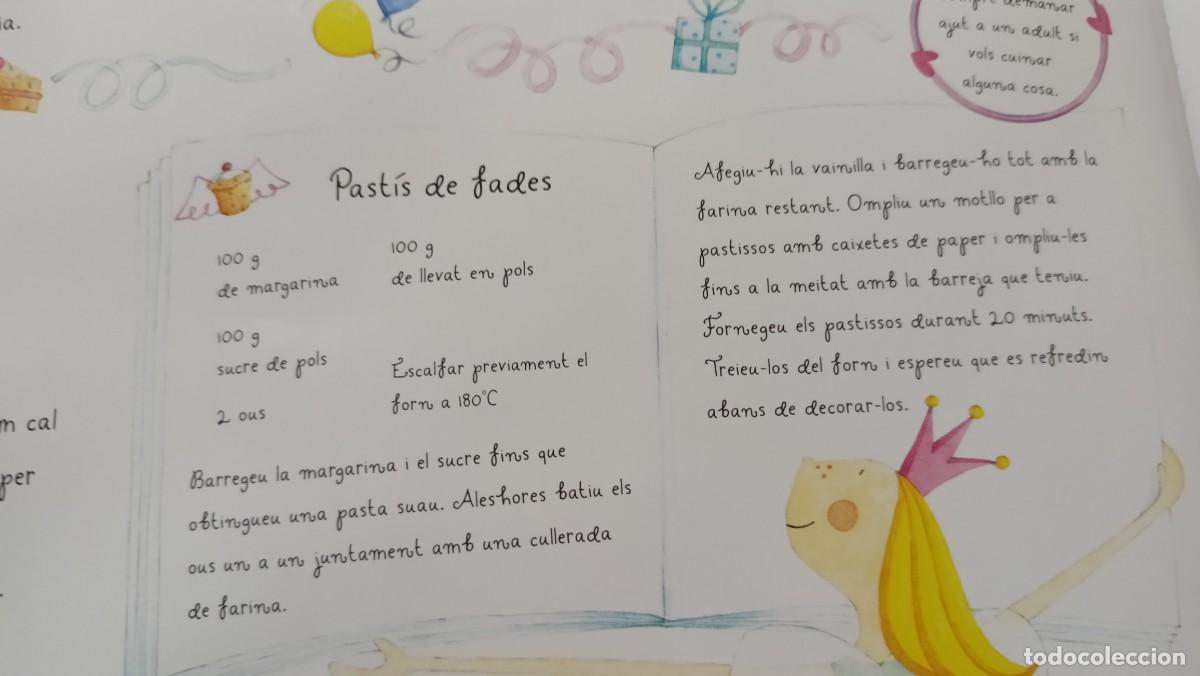 ia.
demanar
ajut a un adult si
vols cuinar
alguna cosa.
Pastís de fades
100 g
de margarina
100 g
sucre de pols
2 ous
100 g
de llevat en pols
Escalfar previament el
forn a 180°C
Barregeu la margarina i el sucre fins que
obtingueu una pasta suau. Aleshores batiu els
ous un a un juntament amb una cullerada
de farina.
Afegiu-hi la vainilla i barregeu-ho tot amb la
farina restant. Ompliu un motllo per a
pastissos amb caixetes de paper i ompliu-les
fins a la meitat amb la barreja que teniu.
Fornegeu els pastissos durant 20 minuts.
Treieu-los del forn i espereu que es refredin
abans de decorar-los.
m cal
per
todocoleccion